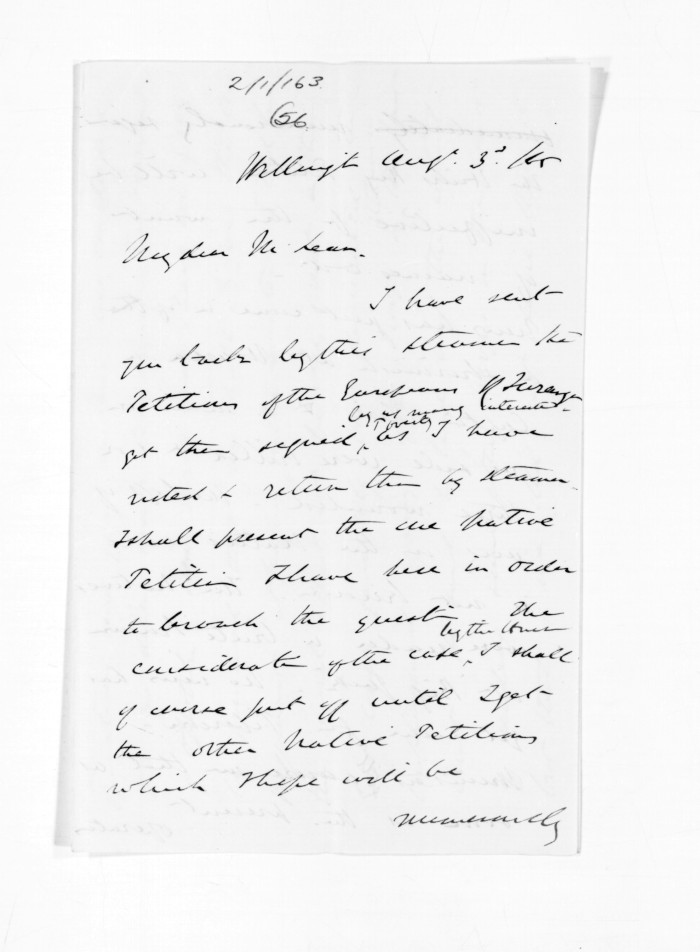 2/1/163
56
Wellingt Augt. 3d. /65
My dear McLean.
I have sent
you back by this steamer the
Petitions of the Europeans of
get them signed, as I have
by as many interested
noted & return them by steamer.
I shall present the one Native
Petition I have here in order
to broach the question. The
consideration of the case, I shall
by the House
of course put off until I get
the other Native Petitions
which I hope will be
numerously